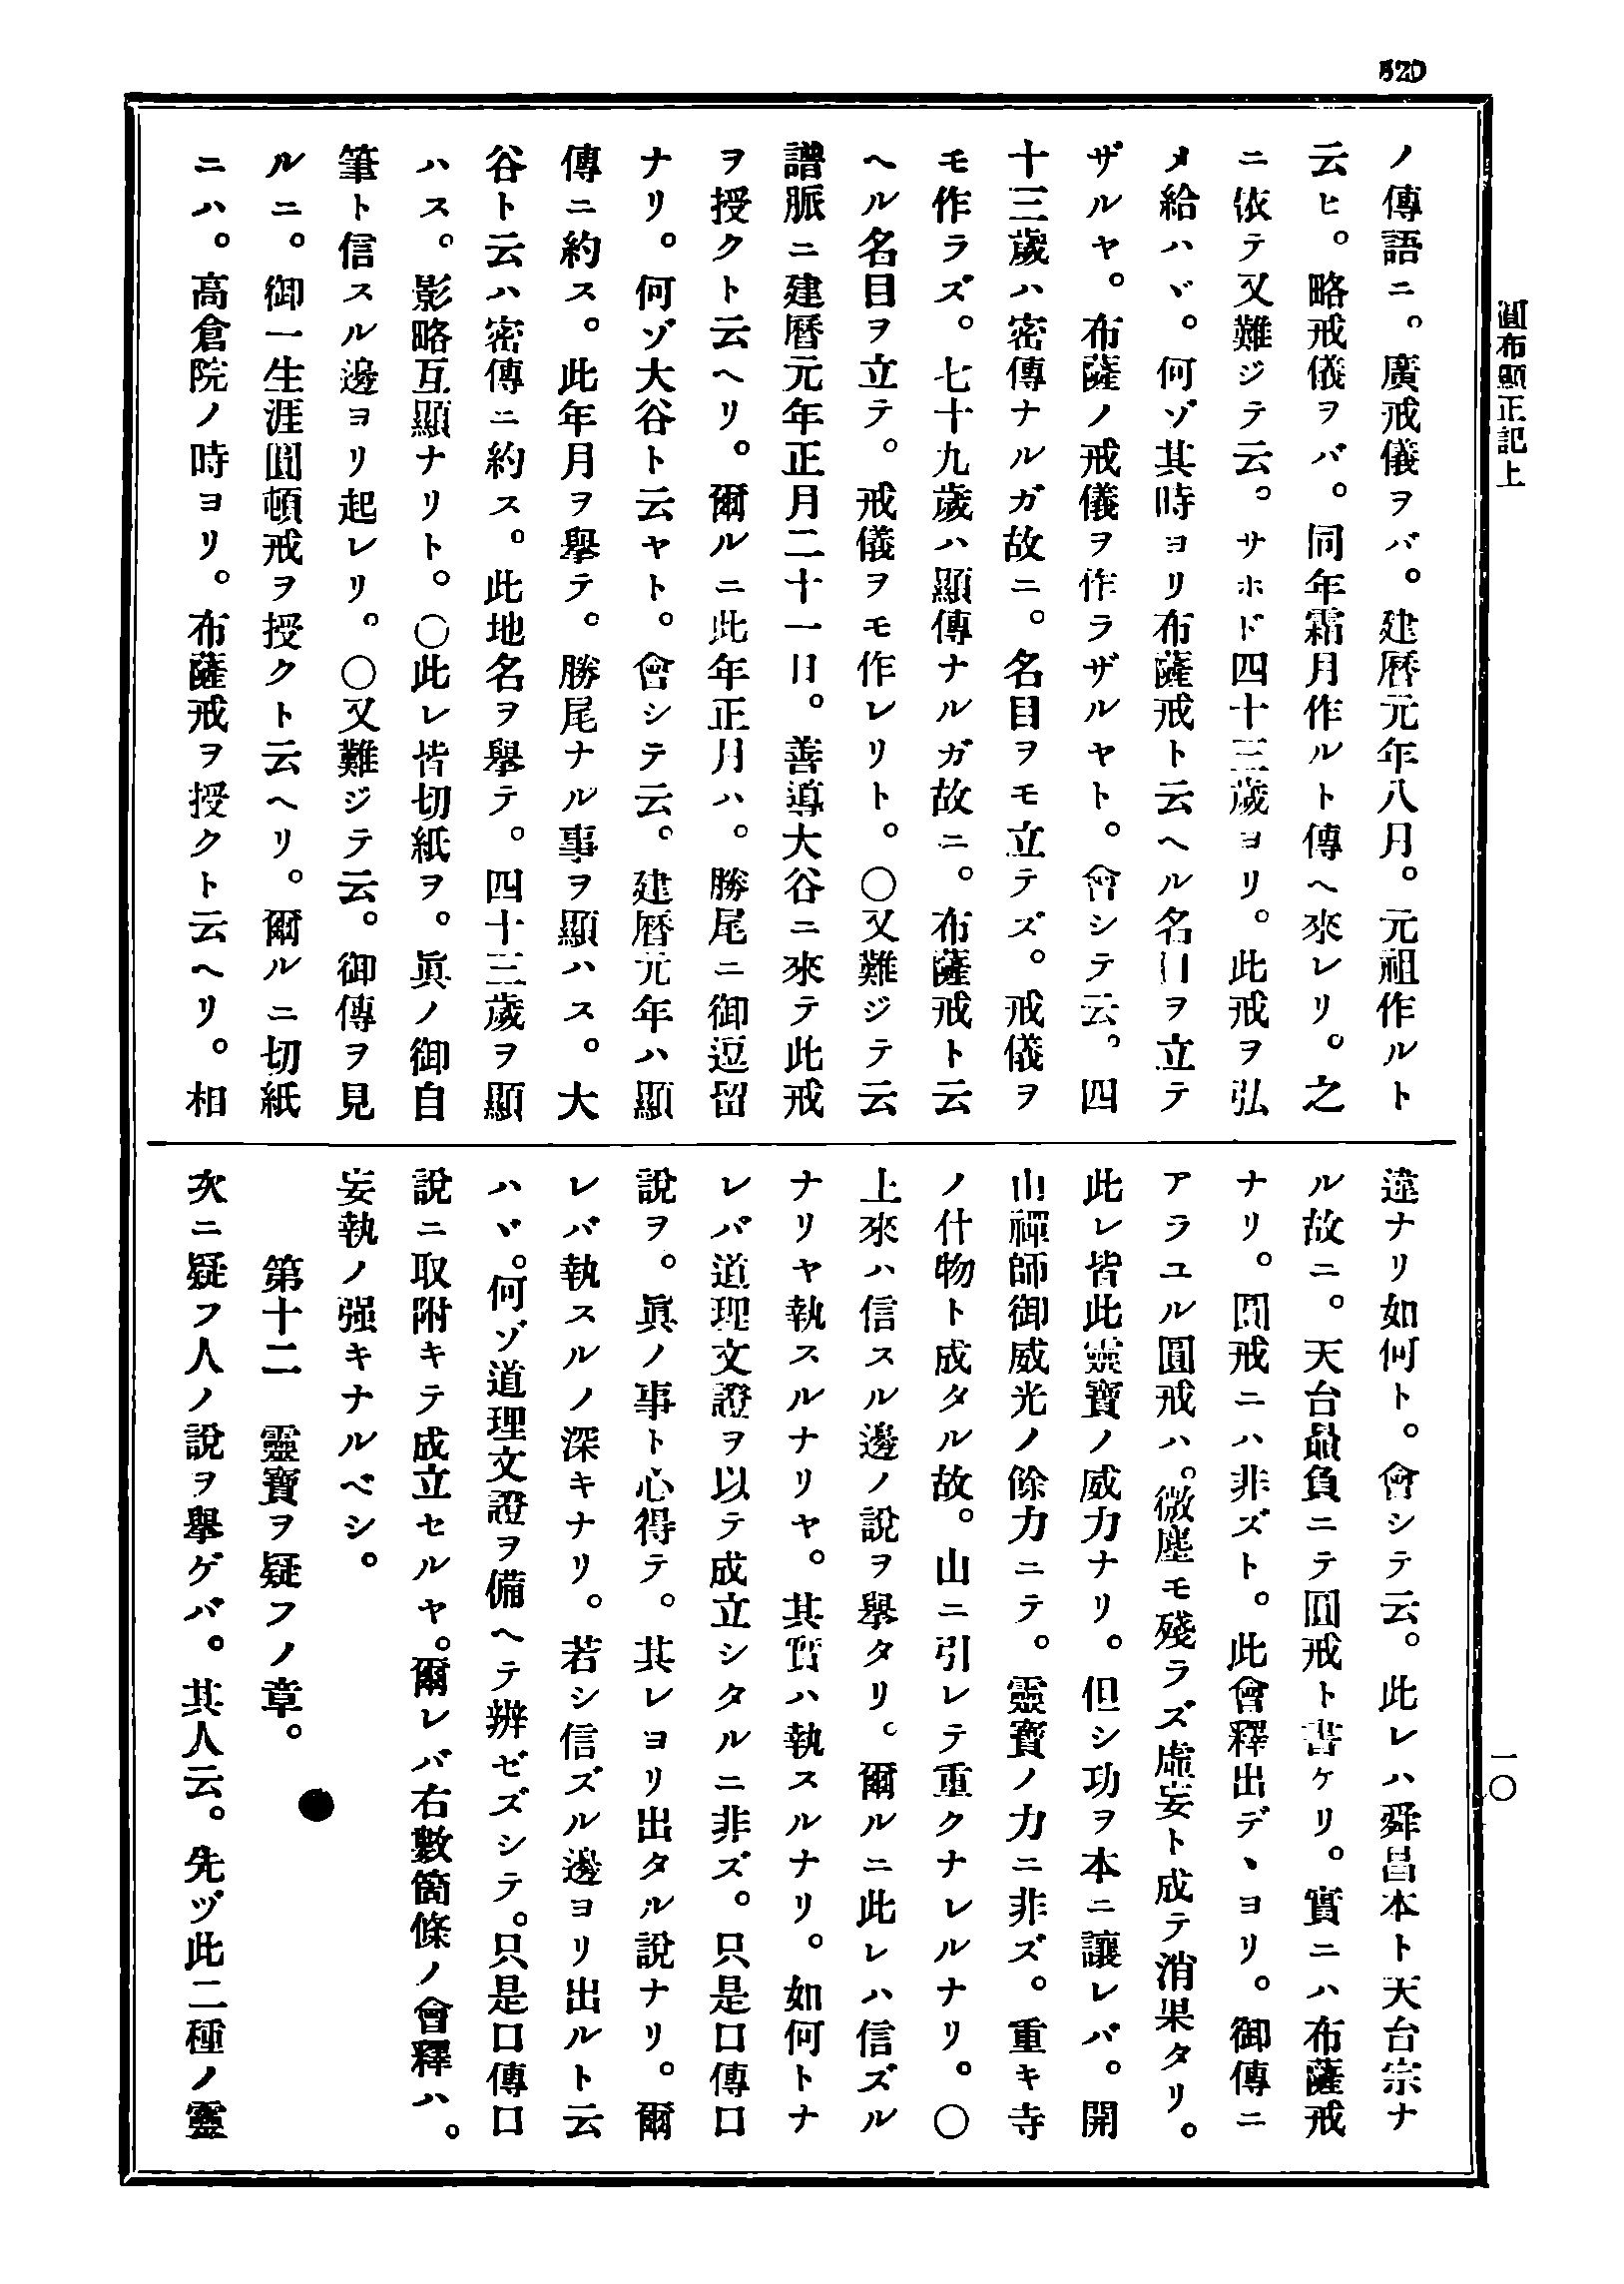 520
圓布顯正記上
一〇
ノ傳語ニ。廣戒儀ヲバ。建曆元年八月。元祖作ルト
云ヒ。略戒儀ヲバ。同年霜月作ルト傳ヘ來レリ。之
ニ依テ又難ジテ云。サホド四十三歲ヨリ。此戒ヲ弘
メ給ハヾ。何ゾ其時ヨリ布薩戒ト云ヘル名目ヲ立テ
ザルヤ。布薩ノ戒儀ヲ作ラザルヤト。會シテ云。四
十三歲ハ密傳ナルガ故ニ。名目ヲモ立テズ。戒儀ヲ
モ作ラズ。七十九歲ハ顯傳ナルガ故ニ。布薩戒ト云
ヘル名目ヲ立テ。戒儀ヲモ作レリト。〇又難ジテ云
譜脈ニ建曆元年正月二十一日。善導大谷ニ來テ此戒
ヲ授クト云ヘリ。爾ルニ此年正月ハ。勝尾ニ御逗留
ナリ。何ゾ大谷ト云ヤト。會シテ云。建曆元年ハ顯
傳ニ約ス。此年月ヲ擧テ。勝尾ナル事ヲ顯ハス。大
谷ト云ハ密傳ニ約ス。此地名ヲ擧テ。四十三歲ヲ顯
ハス。影略互顯ナリト。〇此レ皆切紙ヲ。眞ノ御自
筆ト信スル邊ヨリ起レリ。〇又難ジテ云。御傳ヲ見
ルニ。御一生涯圓頓戒ヲ授クト云ヘリ。爾ルニ切紙
ニハ。高倉院ノ時ヨリ。布薩戒ヲ授クト云ヘリ。相
違ナリ如何ト。會シテ云。此レハ舜昌本ト天台宗ナ
ル故ニ。天台贔負ニテ圓戒ト書ケリ。實ニハ布薩戒
ナリ。圓戒ニハ非ズト。此會釋出デヽヨリ。御傳ニ
アラユル圓戒ハ。微塵モ殘ラズ虛妄ト成テ消果タリ。
此レ皆此靈寶ノ威力ナリ。但シ功ヲ本ニ讓レバ。開
山禪師御威光ノ餘力ニテ。靈寶ノ力ニ非ズ。重キ寺
ノ什物ト成タル故。山ニ引レテ重クナレルナリ。〇
上來ハ信スル邊ノ說ヲ擧タリ。爾ルニ此レハ信ズル
ナリヤ執スルナリヤ。其實ハ執スルナリ。如何トナ
レバ道理文證ヲ以テ成立シタルニ非ズ。只是口傳口
說ヲ。眞ノ事ト心得テ。其レヨリ出タル說ナリ。爾
レバ執スルノ深キナリ。若シ信ズル邊ヨリ出ルト云
ハヾ。何ゾ道理文證ヲ備ヘテ辨ゼズシテ。只是口傳口
說ニ取附キテ成立セルヤ。爾レバ右數箇條ノ會釋ハ。
妄執ノ强キナルベシ。
第十二　靈寶ヲ疑フノ章。
次ニ疑フ人ノ說ヲ擧ゲバ。其人云。先ヅ此二種ノ靈